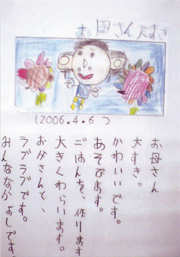 お母さん大すき
(2006.4.6)
お母さん
大すき。
かわいいです。
あそびます。
ごはんを、作ります
大きくわらいます。
お父さんと、
ラブラブです。
みんななかよしです。